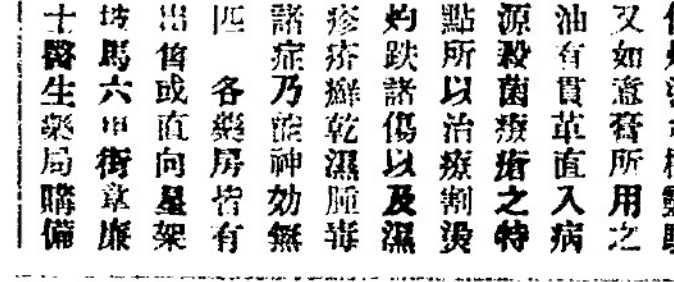 又如意膏所用之
油有貫革直入病
源殺菌療瘡之特
點所以治療割燙
灼跌諸傷以及濕
疹疥癬乾濕腫毒
諸症乃能神効無
匹 各藥房皆有
出售或直向星架
坡馬六甲街章廉
士醫生藥局購備